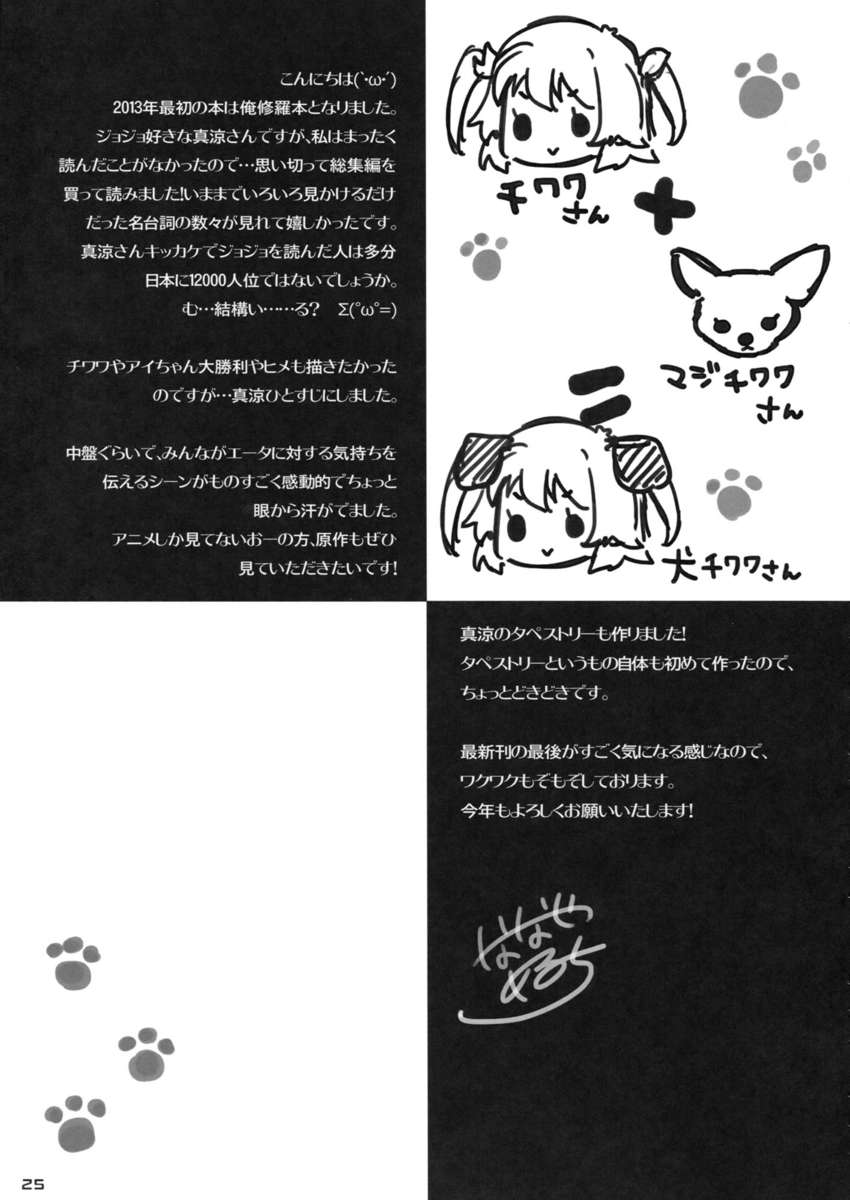 こんにちは(`・ω・´)
2013年最初の本は俺修羅本となりました。
ジョジョ好きな真涼さんですが、私はまったく
読んだことがなかったので…思い切って総集編を
買って読みました!いままでいろいろ見かけるだけ
だった名台詞の数々が見れて嬉しかったです。
真涼さんキッカケでジョジョを読んだ人は多分
日本に12000人位ではないでしょうか。
む…結構い……る? Σ(°ω°=)
チワワやアイちゃん大勝利やヒメも描きたかった
のですが…真涼ひとすじにしました。
中盤ぐらいで、みんながエータに対する気持ちを
伝えるシーンがものすごく感動的でちょっと
眼から汗がでました。
アニメしか見てないおーの方、原作もぜひ
見ていただきたいです!
チワワ
さん
+
マジチワワ
さん
=
犬チワワさん
真涼のタペストリーも作りました!
タペストリーというもの自体も初めて作ったので、
ちょっとどきどきです。
最新刊の最後がすごく気になる感じなので、
ワクワクもぞもぞしております。
今年もよろしくお願いいたします!
25